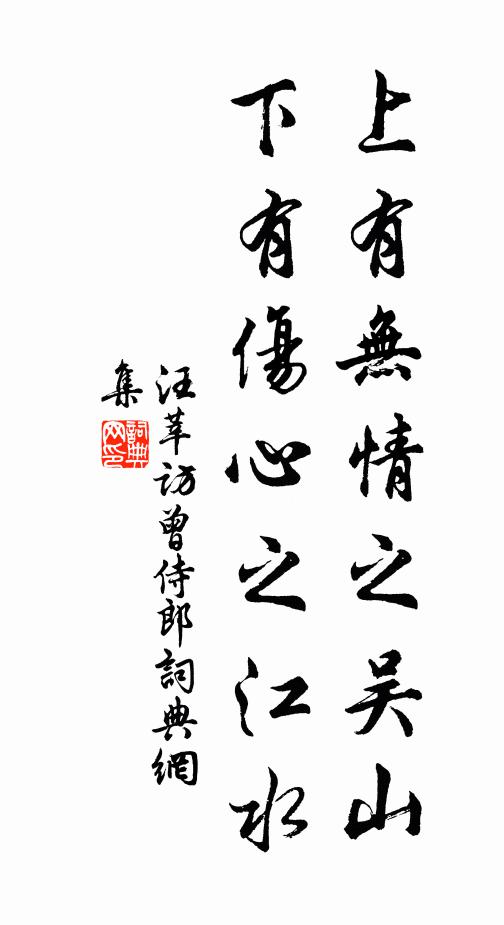 上有無情之吴山
下有傷心之江水
汪莘訪曾侍郎詞典網
集
詞典
网印